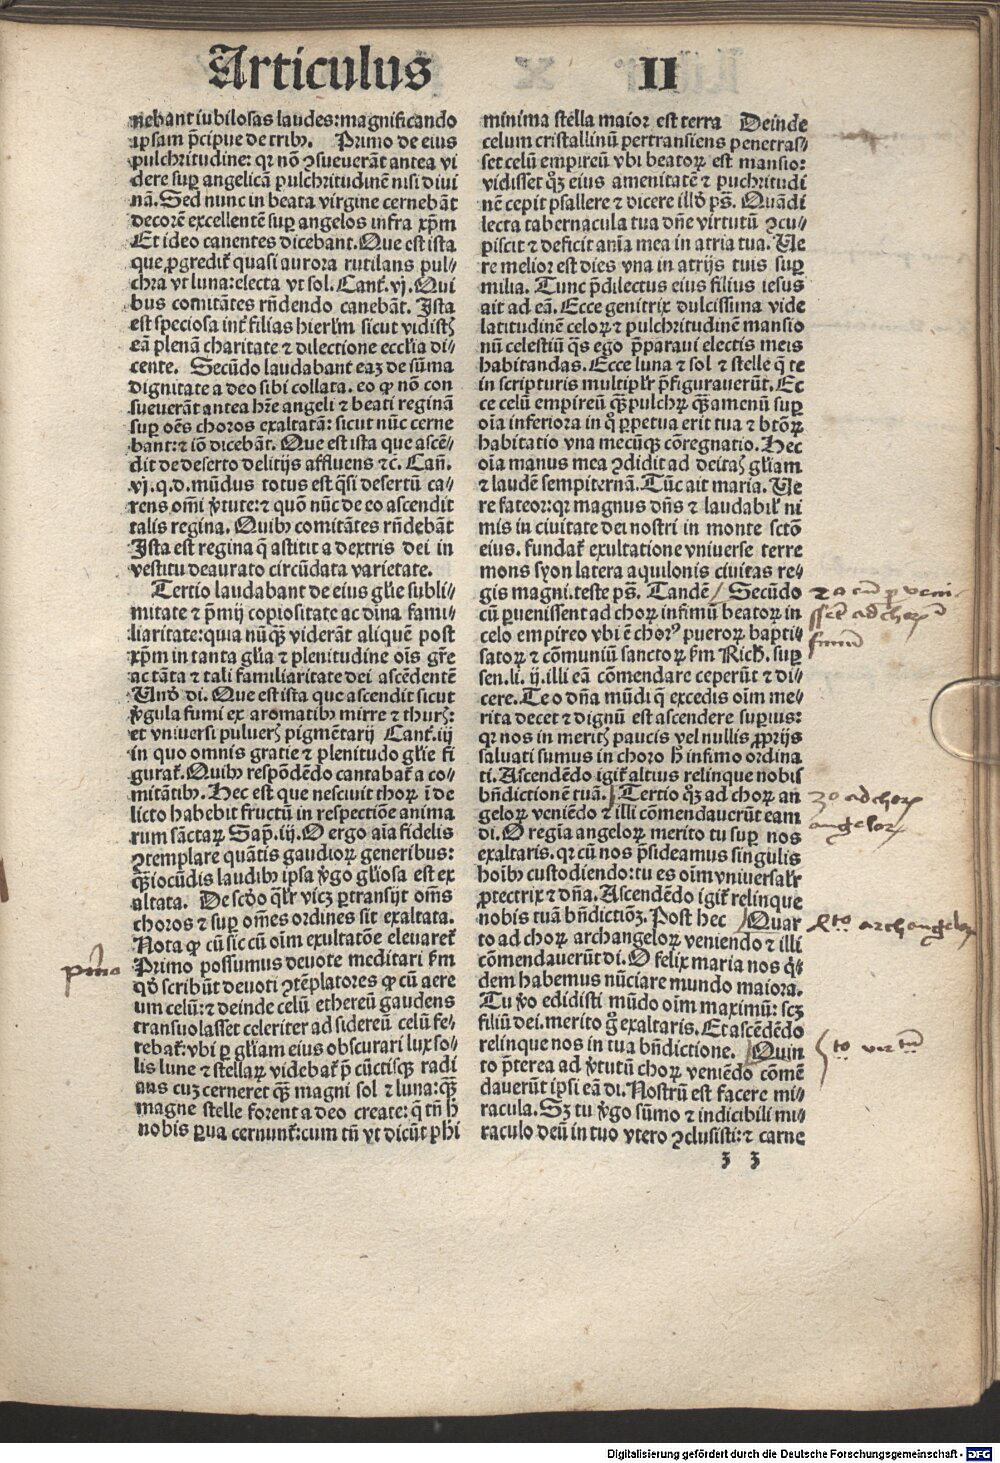 Articulus II
nebant iubilosas laudes: magnificando
ipsam p̄cipue de tribꝰ. Primo de eius
pulchritudine: qꝛ nō ꝯsueuerāt antea vi
dere suꝑ angelicā pulchritudinē nisi diui
nā. Sed nunc in beata virgine cernebāt
decorē excellentē suꝑ angelos infra xp̄m
Et ideo canentes dicebant. Que est ista
que ꝓgredit̄ quasi aurora rutilans pul⸗
chra vt luna: electa vt sol. Cant̄. vj. Qui
bus comitātes rn̄dendo canebāt. Ista
est speciosa int̄ filias hierl̄m sicut vidistꝭ
eā plenā charitate ⁊ dilectione eccl̄ia di⸗
cente. Secūdo laudabant eaꝫ de sūma
dignitate a deo sibi collata. eo ꝙ nō con
sueuerāt antea hr̄e angeli ⁊ beati reginā
suꝑ oēs choros exaltatā: sicut nūc cerne
bant: ⁊ iō dicebāt. Que est ista que ascē⸗
dit de deserto delitijs affluens ⁊c̄. Cañ.
vj. q. d. mūdus totus est q̄si desertū ca⸗
rens om̄i v̄tute: ⁊ quō nūc de eo ascendit
talis regina. Quibꝰ comitātes rn̄debāt
Ista est regina q̄ astitit a dextris dei in
vestitu deaurato circūdata varietate.
Tertio laudabant de eius gl̄ie subli⸗
mitate ⁊ p̄mij copiositate ac diña fami⸗
liaritate: quia nūq̄ꝫ viderāt aliquē post
xp̄m in tanta gl̄ia ⁊ plenitudine oīs gr̄e
ac tāta ⁊ tali familiaritate dei ascēdentē
Vnꝺ̄ di. Que est ista que ascendit sicut
v̄gula fumi ex aromatibꝰ mirre ⁊ thurꝭ:
et vniuersi puluerꝭ pigmētarij Cant̄. iij
in quo omnis gratie ⁊ plenitudo gl̄ie fi
gurat̄. Quibꝰ respōdēdo cantabāt a co⸗
mitātibꝰ. Hec est que nesciuit thoꝝ ī de
licto habebit fructū in respectiōe anima
rum sāctaꝝ Sap̄. iij. O ergo aīa fidelis
ꝯtemplare quātis gaudioꝝ generibus:
q̄ꝫ iocūdis laudibꝰ ipsa v̄go gl̄iosa est ex
altata. De scd̄o ql̄r vicꝫ ꝑtransijt oms̄
choros ⁊ suꝑ om̄es ordines sit exaltata.
Nota ꝙ cū sic cū oīm exultatōe eleuaret̄
Primo possumus deuote meditari ẜm
qd̄ scribūt deuoti ꝯtēplatores ꝙ cū aere
um celū: ⁊ deinde celū ethereū gaudens
transuolasset celeriter ad sidereū celū fe⸗
rebat̄: vbi ꝑ gl̄iam eius obscurari lux so⸗
lis lune ⁊ stellaꝝ videbat̄ p̄ cūctisqꝫ radi
ans cuꝫ cerneret q̄ꝫ magni sol ⁊ luna: q̄ꝫ
magne stelle forent a deo create: q̄ tn̄ h̄
nobis ꝑua cernunt̄: cum tn̄ vt dicūt ph̄i
minima stella maior est terra Deinde
celum cristallinū pertransiens penetras⸗
set celū empireū vbi beatoꝝ est mansio:
vidisset qꝫ eius amenitatē ⁊ puchritudi
nē cepit psallere ⁊ dicere illd̄ ps̄. Quā di
lecta tabernacula tua dn̄e virtutū ꝯcu⸗
piscit ⁊ deficit anīa mea in atria tua. Ve
re melior est dies vna in atrijs tuis suꝑ
milia. Tunc p̄dilectus eius filius iesus
ait ad eā. Ecce genitrix dulcissima vide
latitudinē celoꝝ ⁊ pulchritudinē mansio
nū celestiū q̄s ego p̄paraui electis meis
habitandas. Ecce luna ⁊ sol ⁊ stelle q̄ te
in scripturis multipl̄r p̄figurauerūt. Ec
ce celū empireū q̄ꝫ pulchꝝ q̄ꝫ amenū suꝑ
oīa inferiora in q̊ ꝑpetua erit tua ⁊ btōꝝ
habitatio vna mecūqꝫ cōregnatio. Hec
oīa manus mea ꝯdidit ad deitatꝭ gl̄iam
⁊ laudē sempiternā. Tūc ait maria. Ve
re fateor: qꝛ magnus dn̄s ⁊ laudabil̄ ni
mis in ciuitate dei nostri in monte sctō
eius. fundat̄ exultatione vniuerse terre
mons syon latera aquilonis ciuitas re⸗
gis magni. teste ps̄. Tandē / Secūdo
cū ꝑuenissent ad choꝝ infimū beatoꝝ in
celo empireo vbi ē chorꝰ pueroꝝ bapti⸗
satoꝝ ⁊ cōmuniū sanctoꝝ ẜm Rich̄. suꝑ
sen. li. ij. illi eā cōmendare ceperūt ⁊ di⸗
cere. Te o dn̄a mūdi q̄ excedis oīm me⸗
rita decet ⁊ dignū est ascendere superius:
qꝛ nos in meritꝭ paucis vel nullis ꝓprijs
saluati sumus in choro h̄ infimo ordina
ti. Ascendēdo igit̄ altius relinque nobis
bn̄dictionē tuā. Tertio qꝫ ad choꝝ an
geloꝝ veniēdo ⁊ illi cōmendauerūt eam
di. O regīa angeloꝝ merito tu suꝑ nos
exaltaris. qꝛ cū nos p̄sideamus singulis
hoībꝰ custodiendo: tu es oīm vniuersal̄r
ꝓtectrix ⁊ dn̄a. Ascendēdo igit̄ relinque
nobis tuā bn̄dictiōꝫ. Post hec Quar
to ad choꝝ archangeloꝝ veniendo ⁊ illi
cōmendauerūt di. O felix maria nos q̇
dem habemus nūciare mundo maiora.
Tu v̄o edidisti mūdo oīm maximū: scꝫ
filiū dei. merito g̊ exaltaris. Et ascēdēdo
relinque nos in tua bn̄dictione. Quin
to p̄terea ad v̄tutū choꝝ veniēdo cōmē
dauerūt ipsi eā di. Nostrū est facere mi⸗
racula. Sꝫ tu v̄go sūmo ⁊ indicibili mi⸗
raculo deū in tuo vtero ꝯclusisti: ⁊ carne
ꝫ ꝫ
2o cū ꝑ veni
ssēt ad choꝝ
3o ad choꝝ
angeloꝝ
4to archangeloꝝ
5to virtū
primo
Digitalisierung gefördert durch die Deutsche Forschungsgemeinschaft - DFG